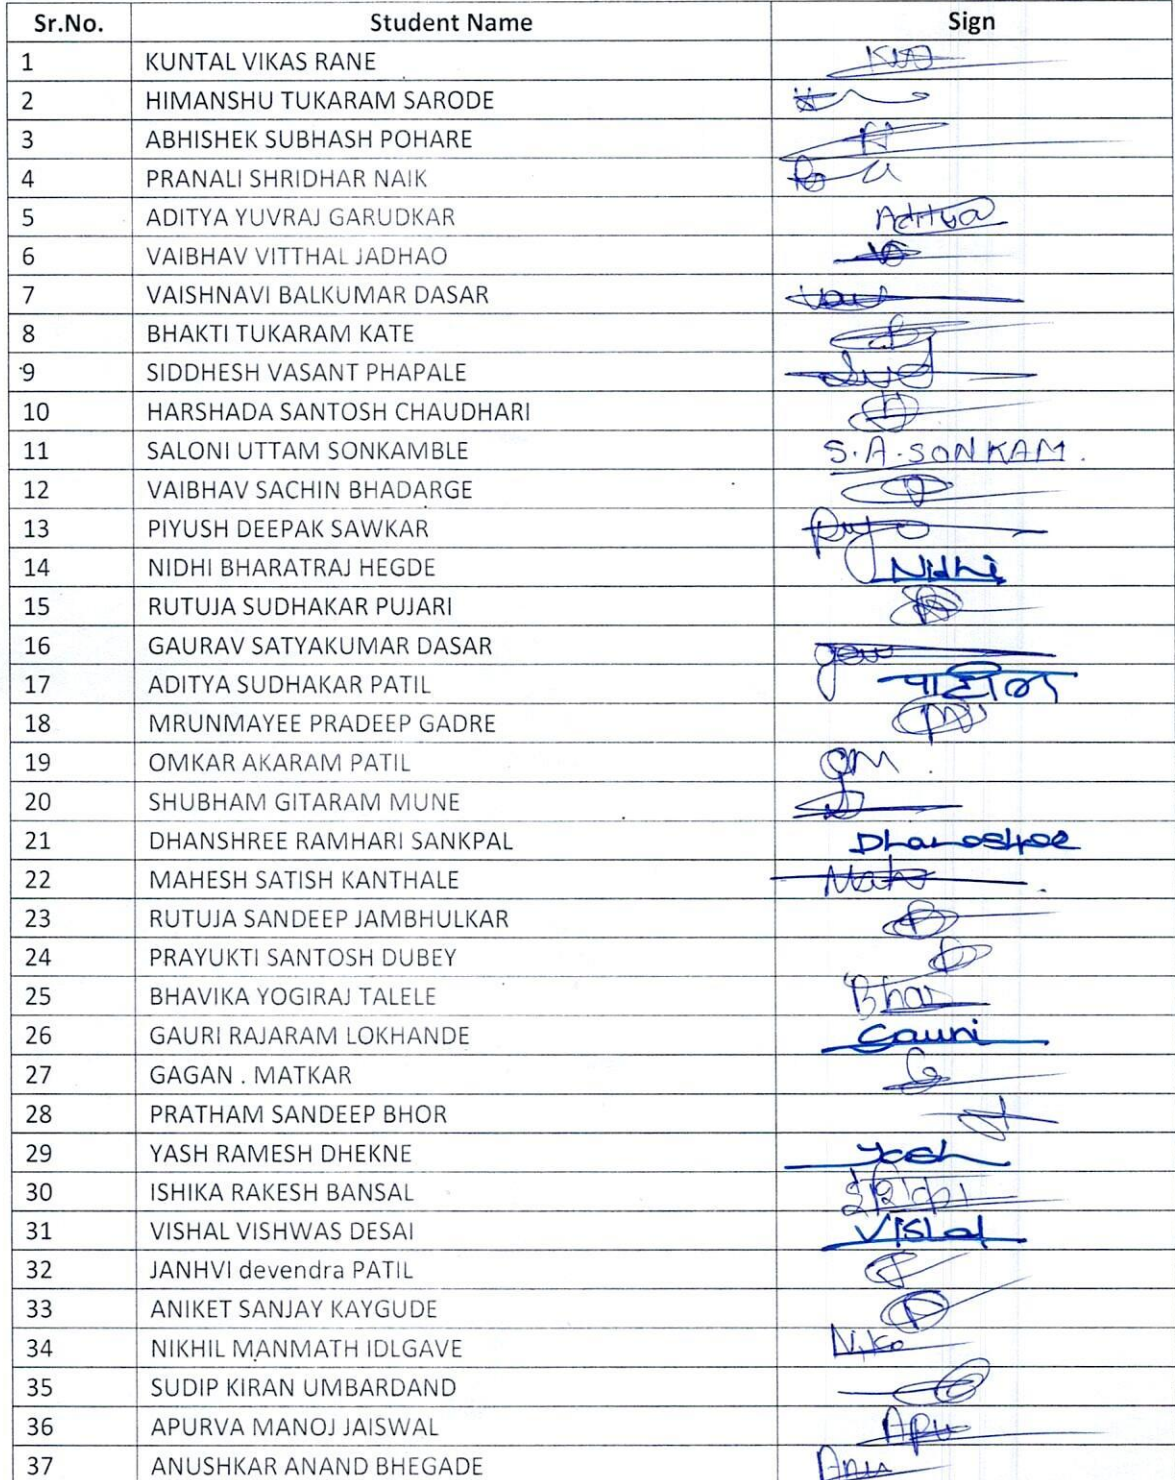 Sr.No. Student Name Sign
1 KUNTAL VIKAS RANE
2 HIMANSHU TUKARAM SARODE
3 ABHISHEK SUBHASH POHARE
4 PRANALI SHRIDHAR NAIK
5 ADITYA YUVRAJ GARUDKAR Aditya
6 VAIBHAV VITTHAL JADHAO
7 VAISHNAVI BALKUMAR DASAR
8 BHAKTI TUKARAM KATE
9 SIDDHESH VASANT PHAPALE
10 HARSHADA SANTOSH CHAUDHARI
11 SALONI UTTAM SONKAMBLE S.A.SONKAM.
12 VAIBHAV SACHIN BHADARGE
13 PIYUSH DEEPAK SAWKAR
14 NIDHI BHARATRAJ HEGDE Nidhi
15 RUTUJA SUDHAKAR PUJARI
16 GAURAV SATYAKUMAR DASAR
17 ADITYA SUDHAKAR PATIL पाटील
18 MRUNMAYEE PRADEEP GADRE
19 OMKAR AKARAM PATIL
20 SHUBHAM GITARAM MUNE
21 DHANSHREE RAMHARI SANKPAL
22 MAHESH SATISH KANTHALE
23 RUTUJA SANDEEP JAMBHULKAR
24 PRAYUKTI SANTOSH DUBEY
25 BHAVIKA YOGIRAJ TALELE
26 GAURI RAJARAM LOKHANDE Gauri
27 GAGAN . MATKAR
28 PRATHAM SANDEEP BHOR
29 YASH RAMESH DHEKNE Yash
30 ISHIKA RAKESH BANSAL
31 VISHAL VISHWAS DESAI Vishal
32 JANHVI devendra PATIL
33 ANIKET SANJAY KAYGUDE
34 NIKHIL MANMATH IDLGAVE
35 SUDIP KIRAN UMBARDAND
36 APURVA MANOJ JAISWAL
37 ANUSHKAR ANAND BHEGADE